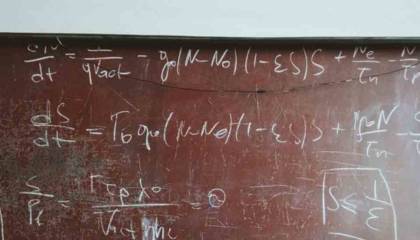 dN/dt = I/qVact − g₀(N−N₀)(1−εS)S + Ne/τn −
dS/dt = Γ₀g₀(N−N₀)(1−εS)S + N/τn −
S/Pf = Γτpλ₀/Vact ηhc = S ≤ 1/ε